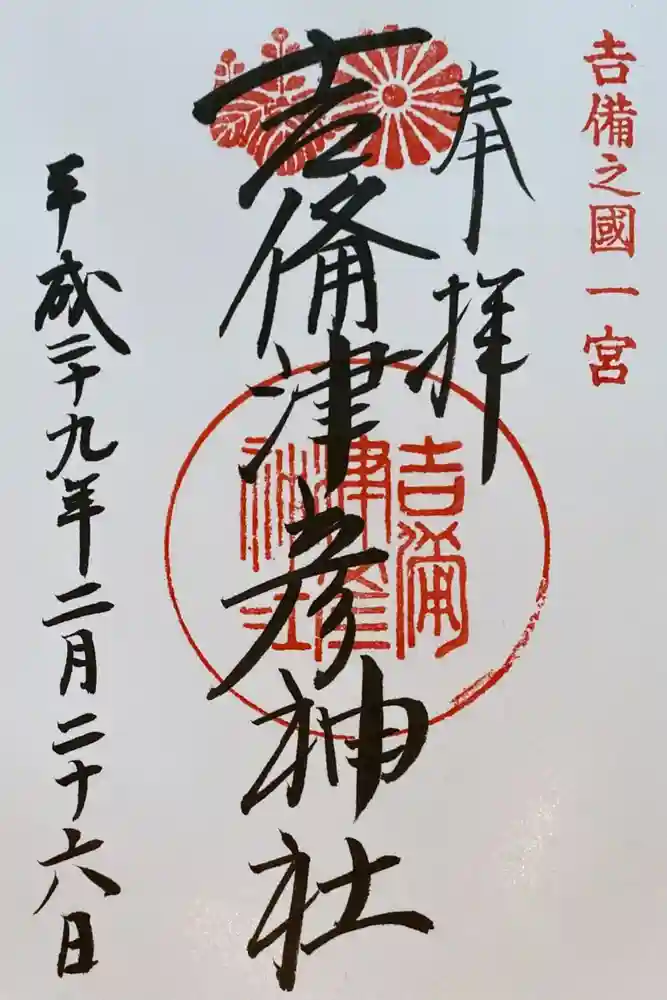 𠮷備之國一宮
奉拝
𠮷備津彦神社
平成二十九年二月二十六日
吉備
津彦
神社